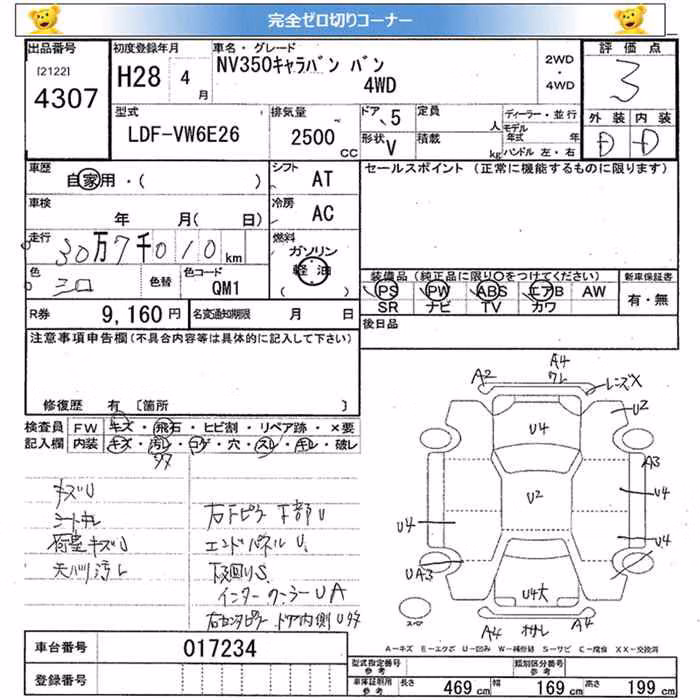 完全ゼロ切りコーナー
出品番号
[2122]
4307
初度登録年月
H28 4月
車名・グレード
NV350キャラバン バン
4WD
2WD
・
4WD
評価点
3
外装 内装
D D
型式
LDF-VW6E26
排気量
2500
CC
ドア 5
形状 V
定員
人
積載
kg
ディーラー・並行
モデル
年式 年
ハンドル 左・右
車歴
自家用・( )
シフト AT
車検
年 月( 日)
冷房 AC
走行
30万7千010km
燃料
ガソリン
軽油
( )
色
シロ
色替
色コード
QM1
R券 9,160円
名変通知期限 月 日
セールスポイント (正常に機能するものに限ります)
装備品(純正品に限り○をつけてください)
PS PW ABS エアB AW
SR ナビ TV カワ
新車保証書
有・無
後日品
注意事項申告欄(不具合内容等は具体的に記入して下さい)
修復歴 有 〔箇所 〕
検査員
記入欄
FW キズ・飛石・ヒビ割・リペア跡・×要
内装 キズ・汚レ・コゲ・穴・スレ・キレ・破レ
キズU
シートキレ
荷室キズU
天バリ汚レ
右Fピラー下部U
エンドパネルU
下回りS
インタークーラーUA
右センタピラー ドア内側U
A2
A4
ワレ
レンズX
U2
U4
A3
U2
U4
U4
U4
UA3
U4大
A4
A4
スペア
A-キズ E-エクボ U-凹み W-補修跡 S-サビ C-腐食 XX-交換済
車台番号 017234
登録番号
型式指定番号
参考
類別区分番号
参考
車庫証明用
参考
長さ 469cm 幅 169cm 高さ 199cm